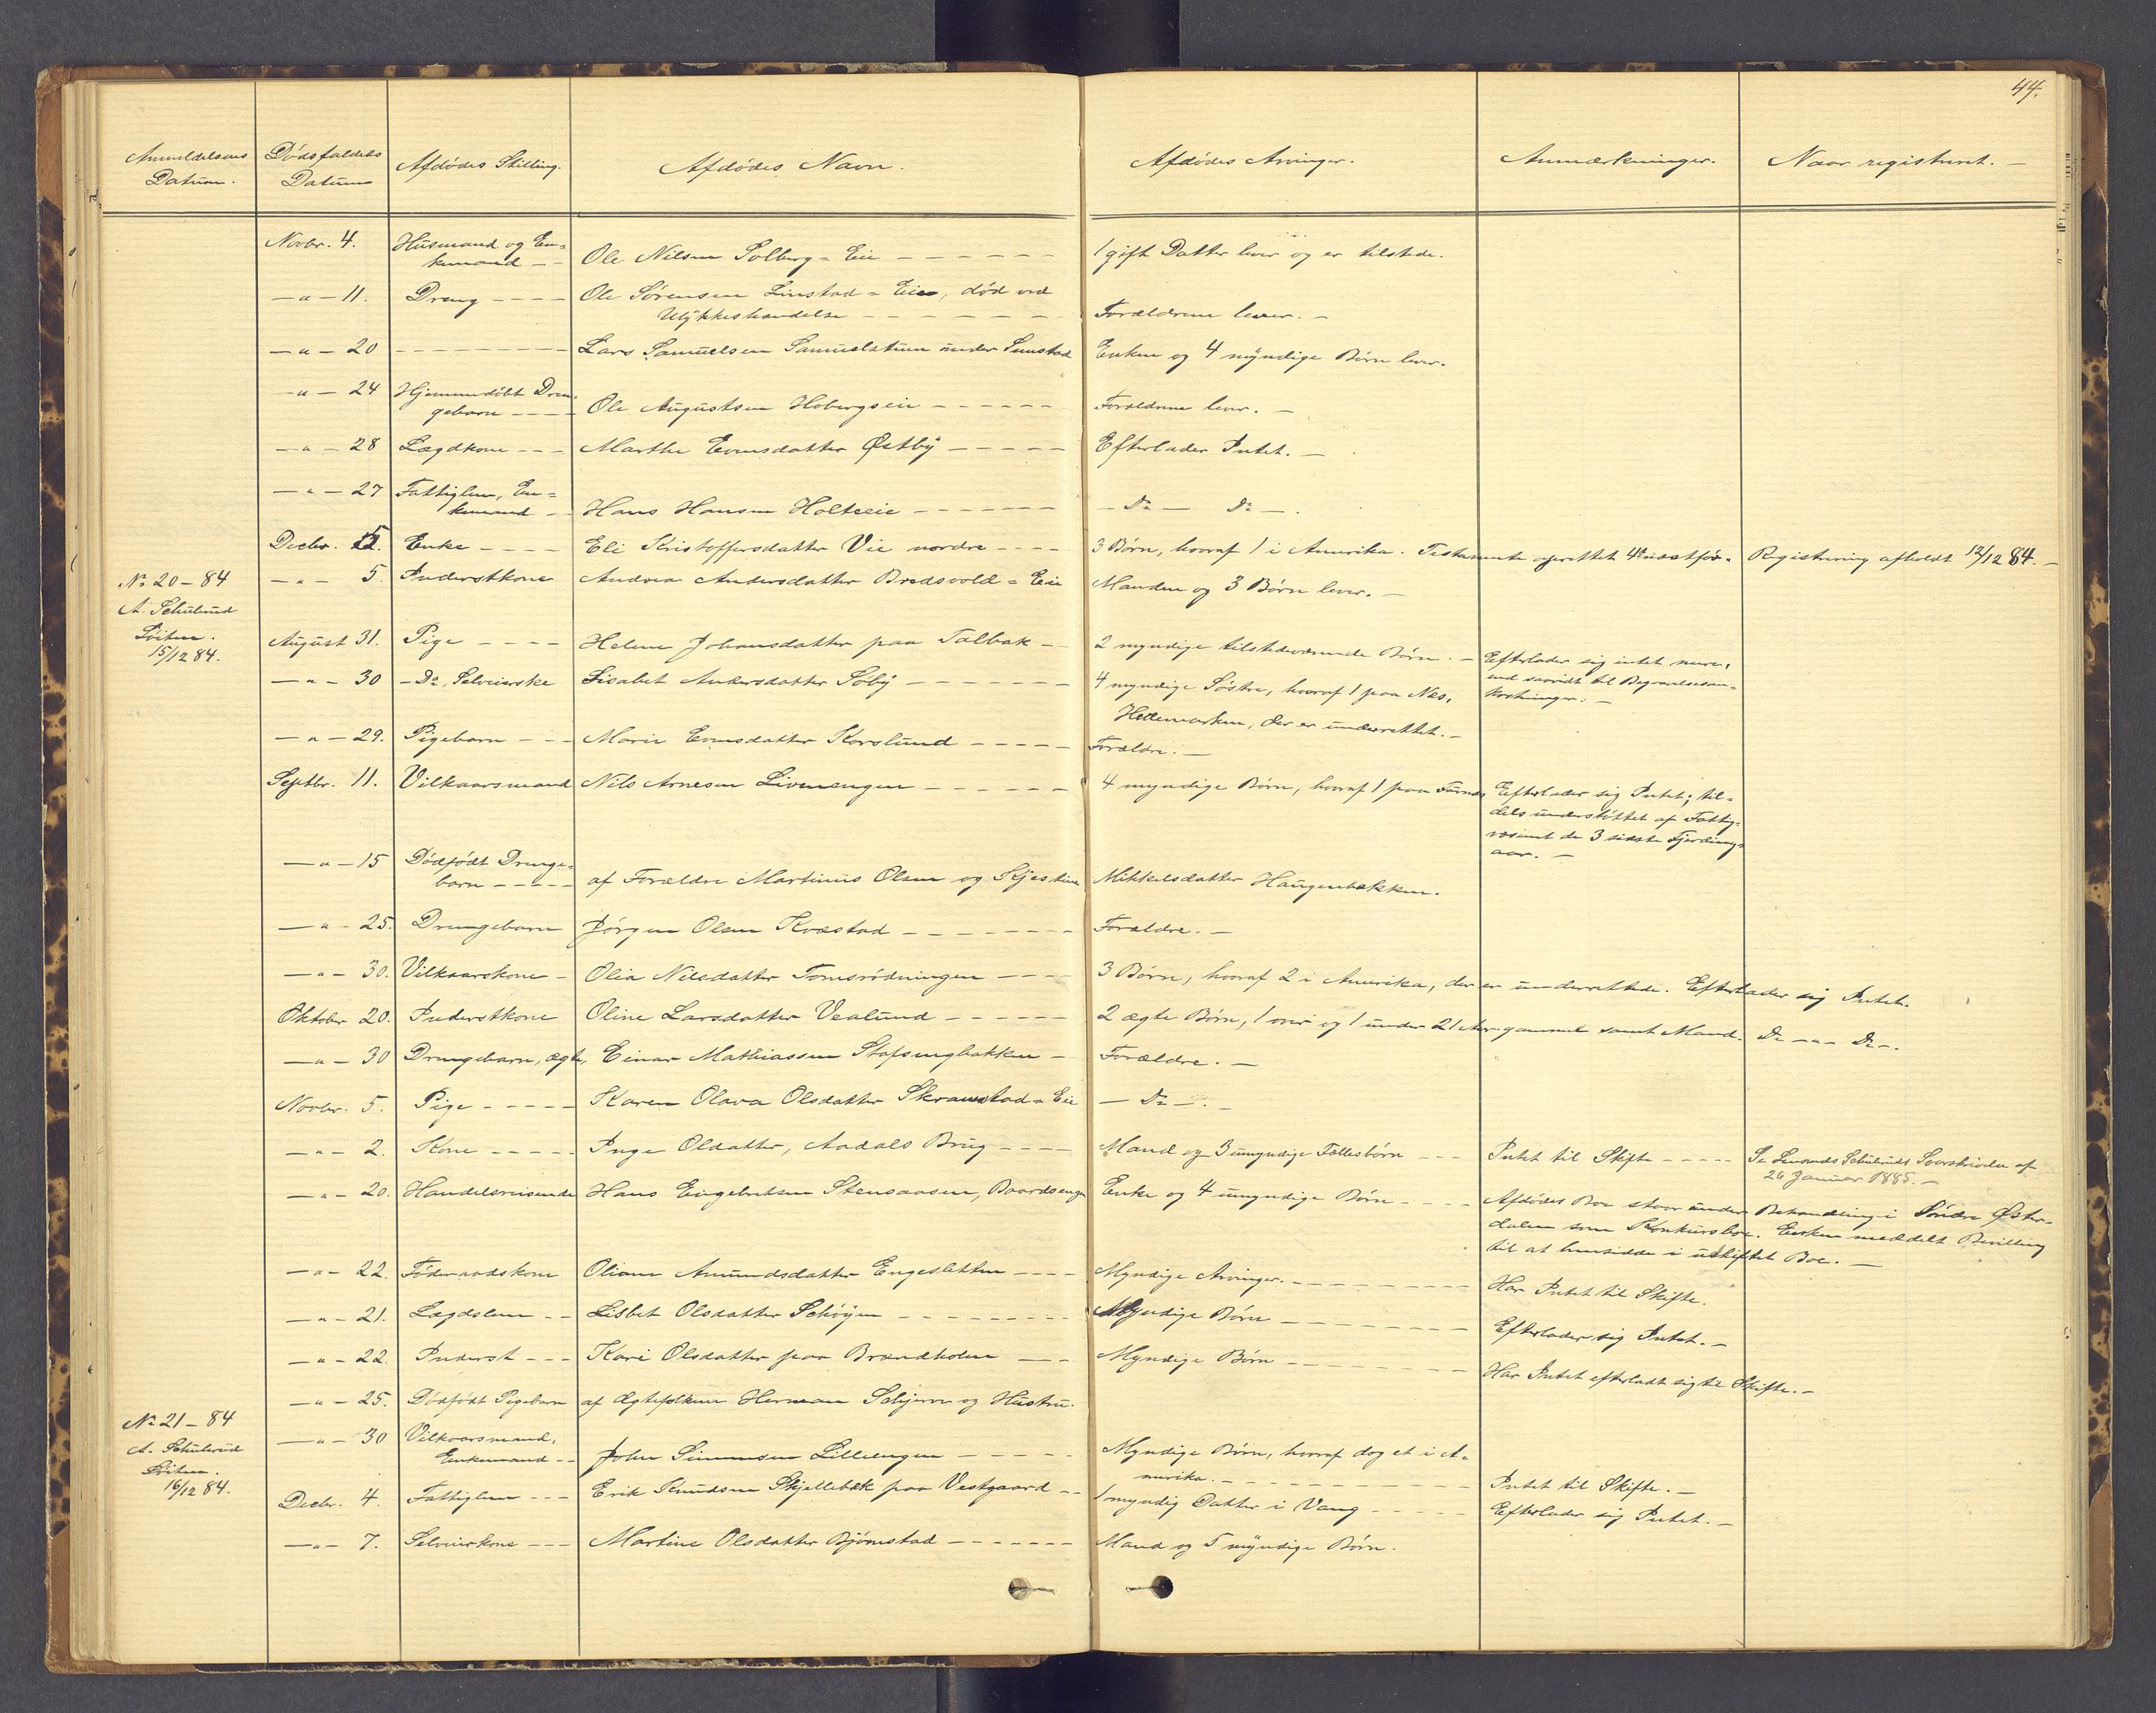 44.
Anmeldelsens Datum.
Dødsfaldets Datum
Afdødes Stilling.
Afdødes Navn.
Afdødes Arvinger.
Anmærkninger.
Naar registreret. —
Novbr. 4. Husmand og En-
kemand – – Ole Nilsen Solberg = Eie – – – – – – 1 gift Datter lever og er tilstede.
— " — 11. Dreng – – – – Ole Sørensen Linstad = Eie, død ved
Ulykkeshændelse – – – – – – Forældrene lever. —
— " — 20 – – – – – – – Lars Samuelsen Samuelstuen under Sunstad Enken og 4 myndige Børn lever.
— " — 24 Hjemmedøbt Dren-
gebarn – – – – Ole Augustsen Hobergseie – – – – – – Forældrene lever. —
— " — 28 Lægdkone – – – Marthe Evensdatter Østby – – – – – Efterlader Intet. —
— " — 27 Fattiglem, En-
kemand – – Hans Hansen Holteeie – – – – – – – Do — Do —.
Decbr. 5. Enke – – – – Eli Kristoffersdatter Vie nordre – – – – 3 Børn, hvoraf 1 i Amerika. Testamente oprettet Registrering afholdt 12/12 84. —
No 20 – 84
A. Schulerud
Løiten.
15/12 84.
— " — 5. Inderstkone Andrea Andersdatter Bredsvold = Eie Manden og 3 Børn lever. —
August 31. Pige – – – – Helene Johansdatter paa Talbak – – 2 myndige tilstedeværende Børn. — Efterlader sig intet mere,
end saavidt til Begravelsesom-
kostninger. —
— " — 30 – Do, Selveierske Lisabet Andersdatter Søby – – – – – – – 4 myndige Søstre, hvoraf 1 paa Næs,
Hedemarken, der er underrettet. —
— " — 29. Pigebarn – – – Marie Evensdatter Korslund – – – – – Forældre. —
Septbr. 11. Vilkaarsmand Nils Arnesen Livmengen – – – – – – 4 myndige Børn, hvoraf 1 paa Furnes Efterlader sig Intet; til-
dels understøttet af Fattig-
væsenet de 3 sidste Fjerding-
aar. —
— " — 15 Dødfødt Drenge-
barn – – – – – af Forældre Martinus Olsen og Kjestine Mikkelsdatter Haugenbakken.
— " — 25. Drengebarn Jørgen Olsen Kvæstad – – – – – – – Forældre. —
— " — 30. Vilkaarskone – Olia Nilsdatter Tomsrødningen – – – – 3 Børn, hvoraf 2 i Amerika, der er underrettede. Efterlader sig Intet.
Oktober 20. Inderstkone Oline Larsdatter Vealund – – – – – – 2 ægte Børn, 1 over og 1 under 21 Aar gammel samt Mand. Do – " – Do –.
— " — 30 Drengebarn, ægte, Einar Mathiassen Stafsengbakken – Forældre. —
Novbr. 5. Pige – – – – – Karen Olava Olsdatter Skramstad = Eie — Do —. —
— " — 2. Kone – – – – – Inge Oldatter, Aadals Brug – – – – Mand og 3 umyndige Fællesbørn – – – Intet til Skifte – – – – – Se Lensmds Schuleruds Svarskrivelse af
26 Januar 1885. —
— " — 20. Handelsreisende Hans Engebretsen Stensaasen, Baardsenge Enke og 4 umyndige Børn – – – – Afdødes Boe staar under Behandling i Søndre Øster-
dalen som Konkursboe. Enken meddelt Bevilling
til at hensidde i uskiftet Boe. —
— " — 22. Føderaadskone Oliane Amundsdatter Engesletten – – – – Myndige Arvinger. – – – – – – – – Har Intet til Skifte.
— " — 21. Lægdslem – – Lisbet Olsdatter Schøyen – – – – – – – – Myndige Børn – – – – – – – – Efterlader sig Intet. —
— " — 22. Inderst – – – Kari Olsdatter paa Brændholen – – – Myndige Børn – – – – – – – – Har Intet efterladt sig til Skifte. —
— " — 25. Dødfødt Pigebarn af Ægtefolkene Herman Schjerve og Hustru.
No 21 – 84
A. Schulerud
Løiten.
16/12 84.
— " — 30 Vilkaarsmand,
Enkemand – – John Simensen Lilleengen – – – – – Myndige Børn, hvoraf dog et i A-
merika. – – – – – – – – – – Intet til Skifte. —
Decbr. 4. Fattiglem – – – Erik Knudsen Skjellebæk paa Vestgaard – – 1 myndig Datter i Vang – – – – – Efterlader sig Intet. —
— " — 7. Selveierkone – – – Martine Olsdatter Bjørnstad – – – – – – – Mand og 5 myndige Børn.